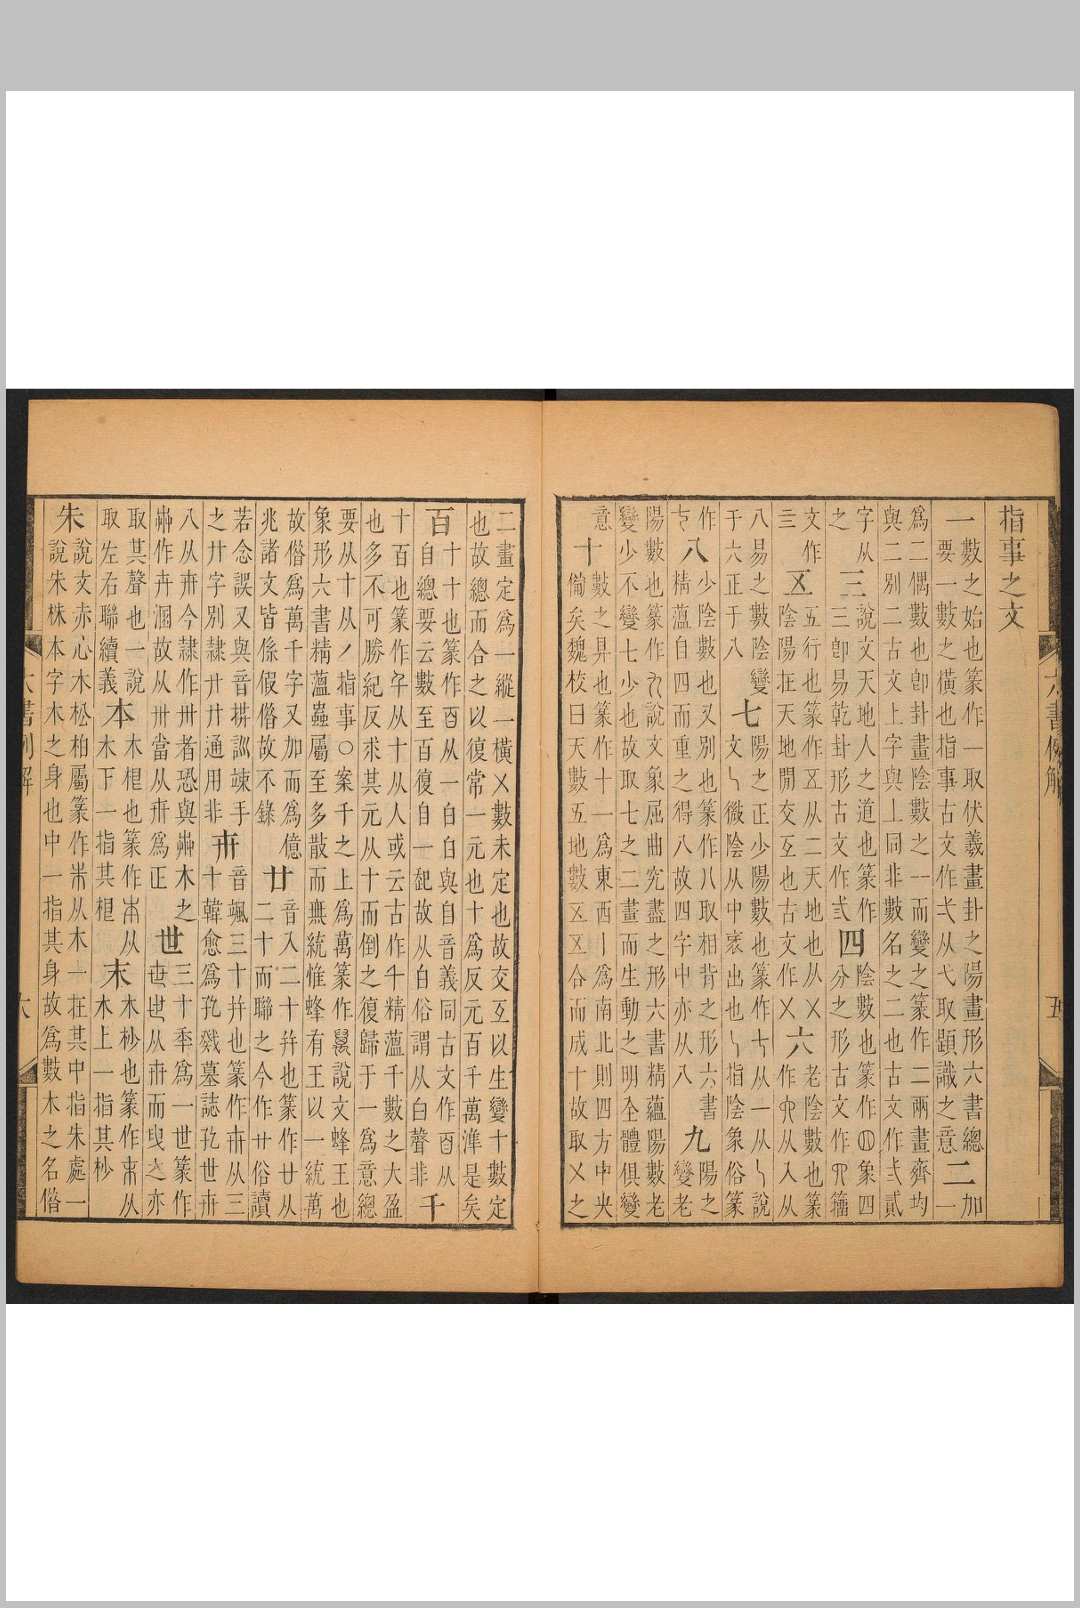 指事之文
一數之始也篆作一取伏羲畫卦之陽畫形六書總
要一數之橫也指事古文作弌从弋取題識之意二加一
爲二偶數也卽卦畫陰數之一而變之篆作二兩畫齊均
與二別二古文上字與上同非數名之二也古文作弍貳
字从之三說文天地人之道也篆作
三三卽易乾卦形古文作弎四陰數也篆作四象四
分之形古文作籀
文作亖五五行也篆作五从二天地也从乂
陰陽在天地閒交互也古文作乂六老陰數也篆
作从入从
八易之數陰變
于六正于八七陽之正少陽數也篆作七从一从說
文微陰从中衺出也指陰象俗篆
作七八少陰數也又別也篆作八取相背之形六書
精蘊自四而重之得八故四字中亦从八九陽之變老
陽數也篆作九說文象屈曲究盡之形六書精蘊陽數老
變少不變七少也故取七之二畫而生動之明全體俱變
意十數之具也篆作十一爲東西丨爲南北則四方中央
備矣魏校曰天數五地數五五合而成十故取乂之
二畫定爲一縱一橫乂數未定也故交互以生變十數定
也故總而合之以復常一元也十爲反元百千萬準是矣
百十十也篆作百从一白白與自音義同古文作百从
自總要云數至百復自一起故从自俗謂从白聲非千
十百也篆作千从十从人或云古作千精蘊千數之大盈
也多不可勝紀反求其元从十而倒之復歸于一爲意總
要从十从丿指事○案千之上爲萬篆作萬說文蜂王也
象形六書精蘊蟲屬至多散而無統惟蜂有王以一統萬
故借爲萬千字又加而爲億
兆諸文皆係假借故不錄廿音入二十幷也篆作廿从
二十而聯之今作廿俗讀
若念誤又與音拱訟竦手
之廾字別隸廾廿通用非卅音颯三十幷也篆作卅从三
十韓愈爲孔戣墓誌孔世卅
八从卅今隸作卅者恐與芔木之
芔作卉溷故从卅當从卅爲正世三十秊爲一世篆作
世从卅而曳之亦
取其聲也一說
取左右聯續義本木根也篆作本从
木下一指其根末木杪也篆作末从
木上一指其杪
朱說文赤心木松柏屬篆作朱从木一在其中指朱處一
說朱株本字木之身也中一指其身故爲數木之名借
六書例解
五
六書例解
六